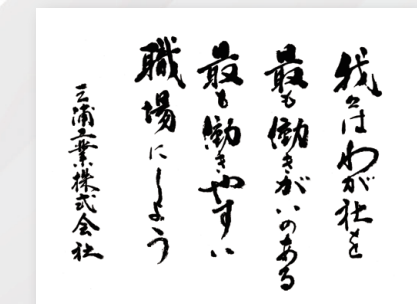 我々はわが社を
最も働きがいのある
最も働きやすい
職場にしよう
三浦工業株式会社